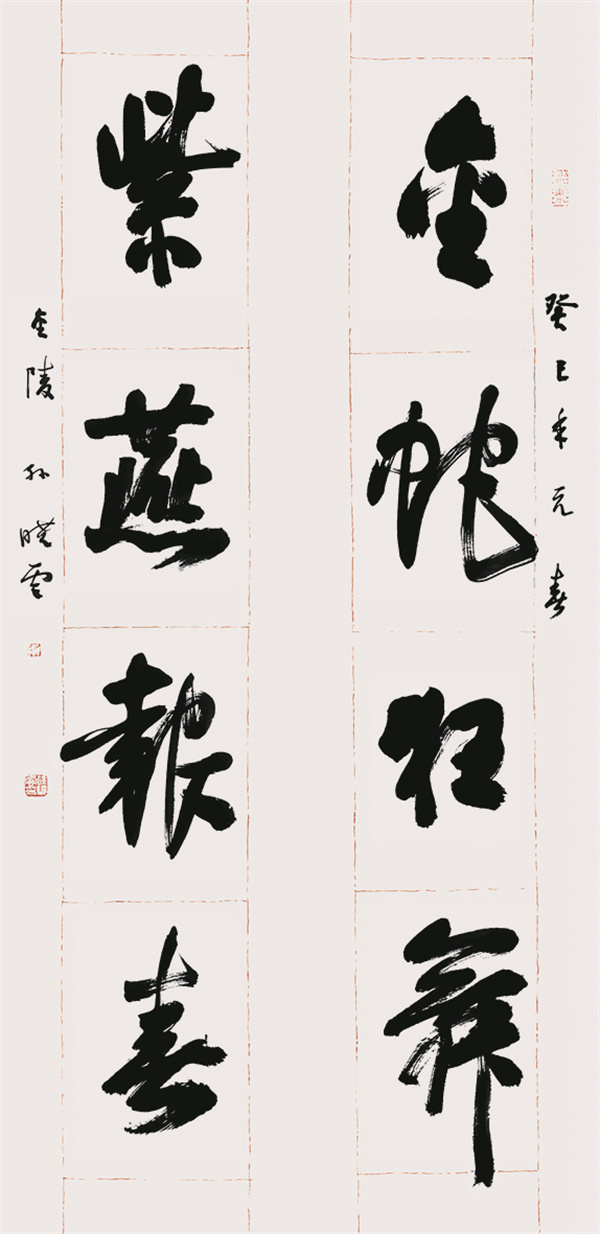 癸巳年元春
金蛇狂舞
紫燕報春
金陵 孫曉雲